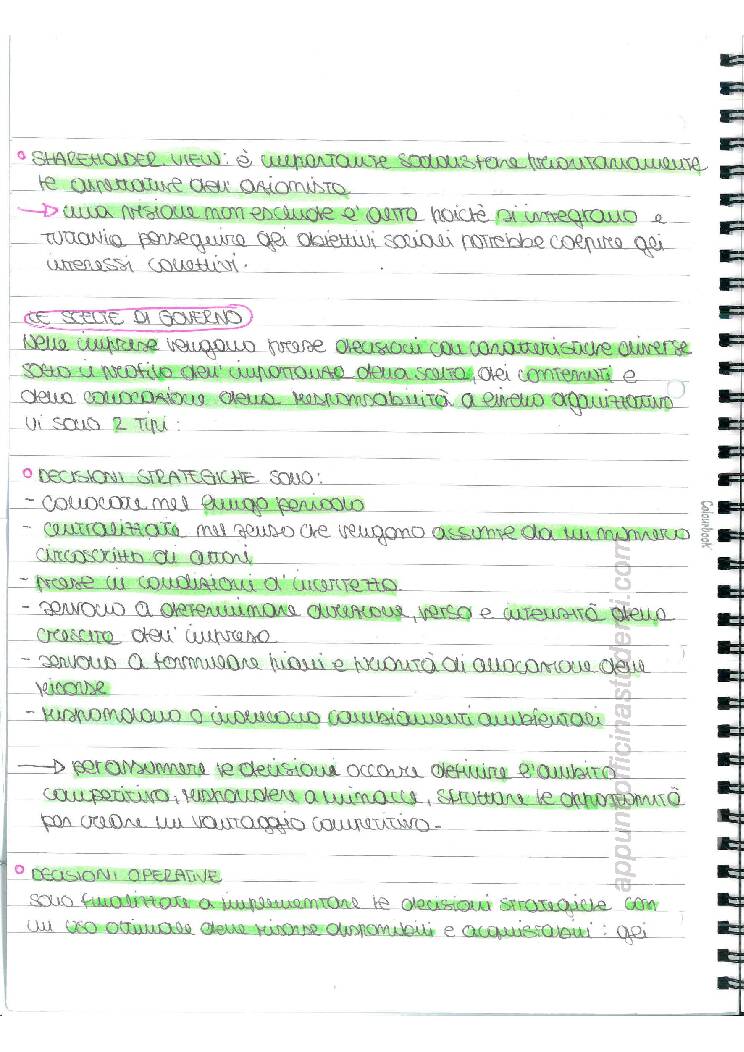 • SHAREHOLDER VIEW: è importante soddisfare prioritariamente
le aspettative dell'azionista
→ una visione non esclude l'altra poichè si integrano e
tuttavia perseguire gli obiettivi sociali potrebbe colpire gli
interessi collettivi.
LE SCELTE DI GOVERNO
Nelle imprese vengono prese decisioni con caratteristiche diverse
sotto il profilo dell'importanza della scelta, dei contenuti e
della collocazione della responsabilità a livello organizzativo
Vi sono 2 tipi:
• DECISIONI STRATEGICHE sono:
- collocate nel lungo periodo
- centralizzate nel senso che vengono assunte da un numero
circoscritto di attori
- prese in condizioni d'incertezza
- servono a determinare direzione, verso e intensità della
crescita dell'impresa
- servono a formulare piani e priorità di allocazione delle
risorse
- rispondono o inducono cambiamenti ambientali
→ per assumere le decisione occorre definire l'ambito
competitivo, rispondere a minacce, sfruttare le opportunità
per creare un vantaggio competitivo-
• DECISIONI OPERATIVE
sono finalizzate a implementare le decisioni strategiche con
un uso ottimale delle risorse disponibili e acquistabili: gli
Colourbook
appuntiofficinastudenti.com